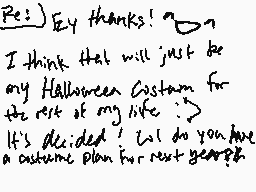 Re: Ey thanks!
I think that will just be
my Halloween costum for
the rest of my life :>
It's decided! Lol do you have
a costume plan for next year?